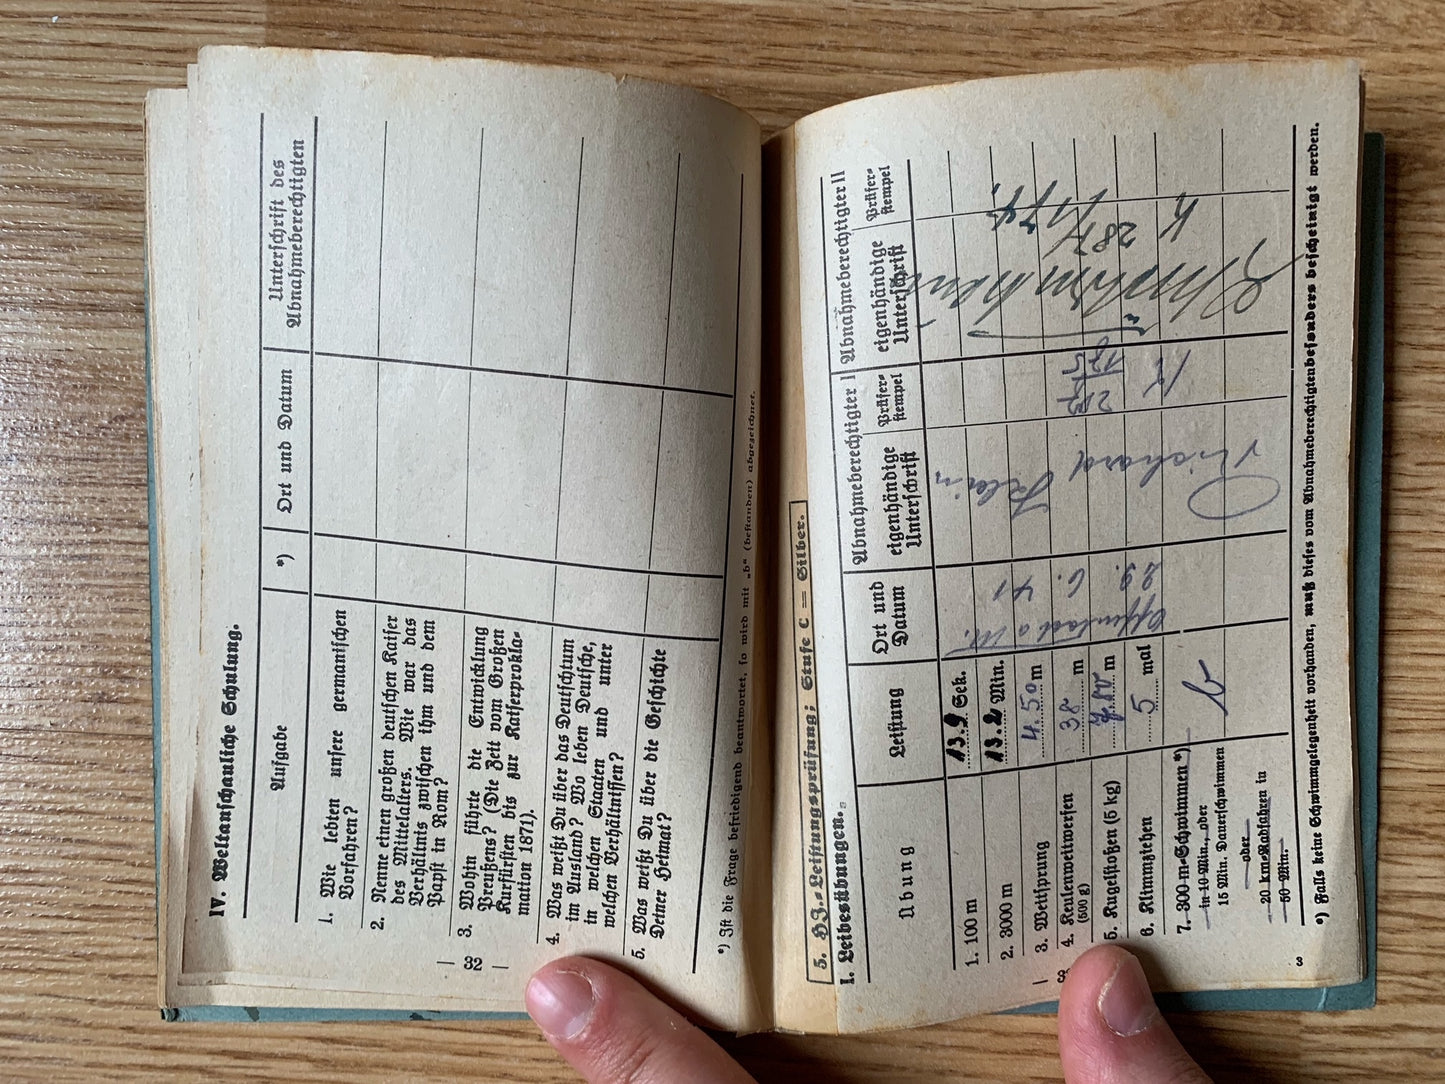 IV. Weltanschauliche Schulung.
Aufgabe
*)
Ort und Datum
Unterschrift des
Abnahmeberechtigten
1. Wie lebten unsere germanischen
Vorfahren?
2. Nenne einen großen deutschen Kaiser
des Mittelalters. Wie war das
Verhältnis zwischen ihm und dem
Papst in Rom?
3. Wohin führte die Entwicklung
Preußens? (Die Zeit vom Großen
Kurfürsten bis zur Kaiserprokla-
mation 1871).
4. Was weißt Du über das Deutschtum
im Ausland? Wo leben Deutsche,
in welchen Staaten und unter
welchen Verhältnissen?
5. Was weißt Du über die Geschichte
Deiner Heimat?
*) Ist die Frage befriedigend beantwortet, so wird mit „b“ (bestanden) abgezeichnet.
— 32 —
5. HJ.-Leistungsprüfung; Stufe C = Silber.
I. Leibesübungen.
Übung
Leistung
Ort und
Datum
Abnahmeberechtigter I
eigenhändige
Unterschrift
Prüfer-
stempel
Abnahmeberechtigter II
eigenhändige
Unterschrift
Prüfer-
stempel
1. 100 m 13.9 Sek.
2. 3000 m 13.2 Min.
3. Weitsprung 4.50 m
4. Keulenweitwerfen 38 m
(500 g)
5. Kugelstoßen (5 kg) m
6. Klimmziehen 5 mal
7. 300-m-Schwimmen *)
in 10 Min., oder
15 Min. Dauerschwimmen
oder
20 km-Radfahren in
50 Min.
b
Offenbach a M.
29. 6. 41
Richard Klein
K
287/174
K
*) Falls keine Schwimmgelegenheit vorhanden, muß dieses vom Abnahmeberechtigten besonders bescheinigt werden.
3